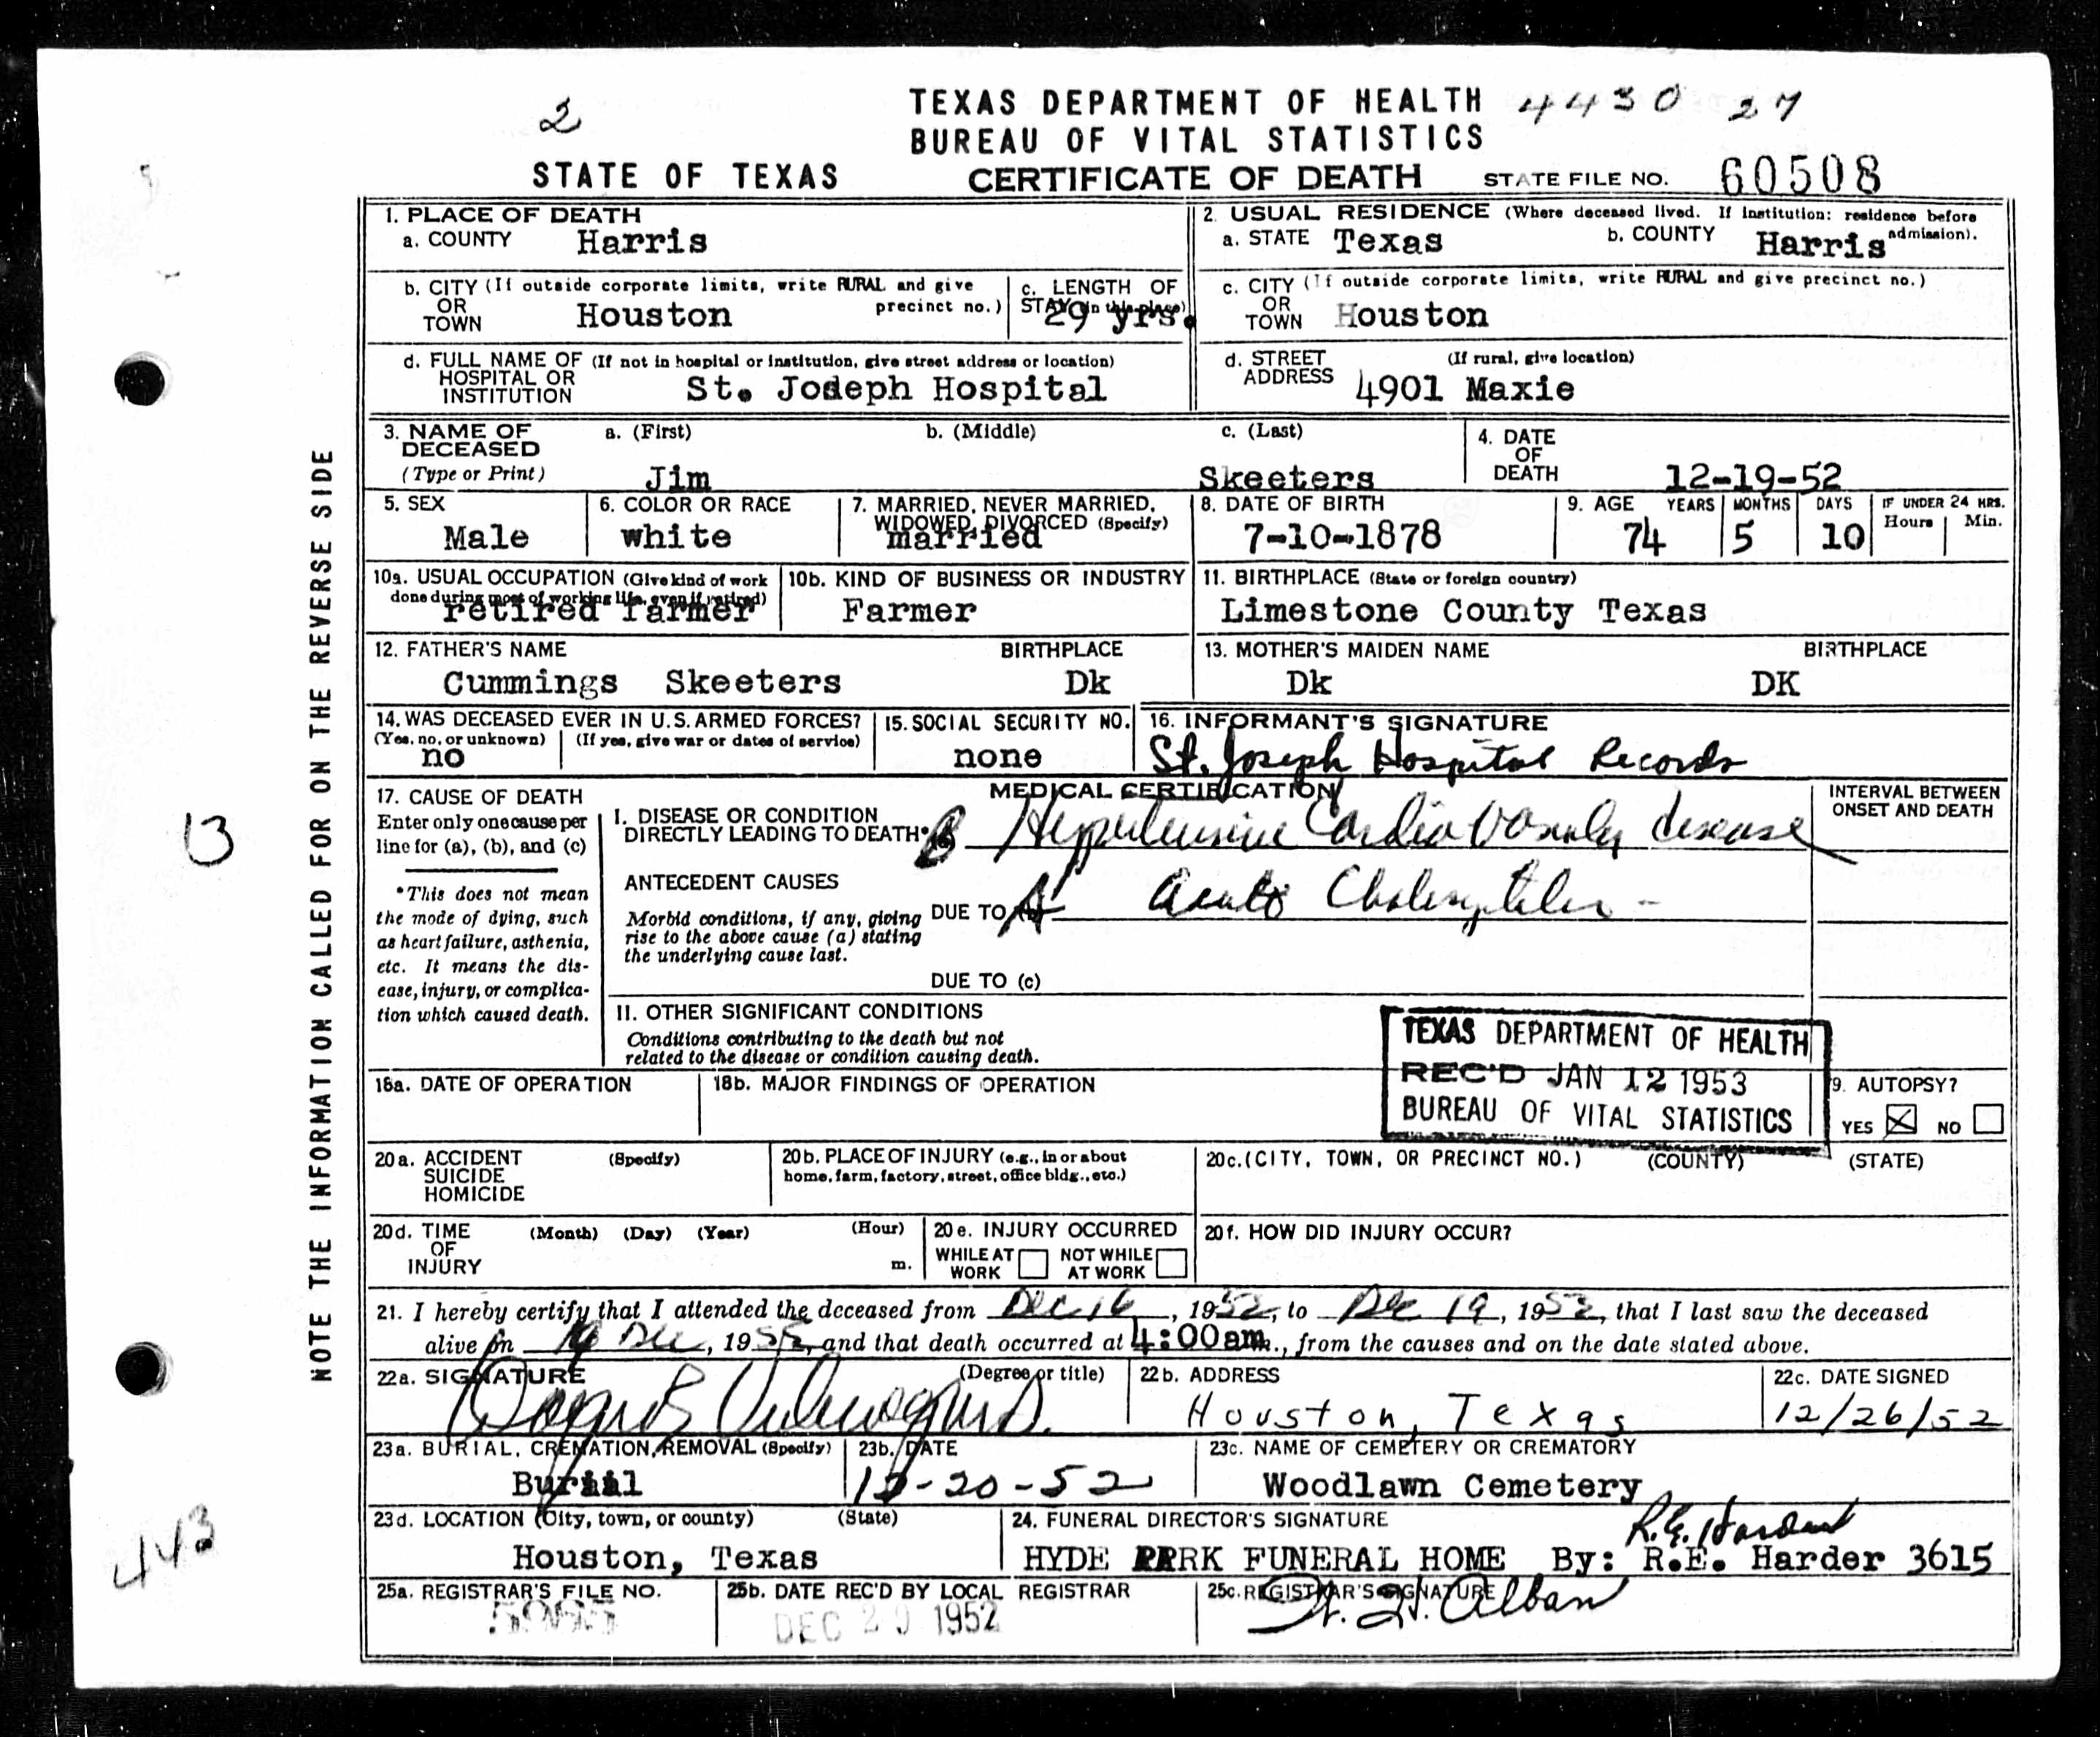 2
TEXAS DEPARTMENT OF HEALTH 4430 27
BUREAU OF VITAL STATISTICS
STATE OF TEXAS CERTIFICATE OF DEATH STATE FILE NO. 60508
1. PLACE OF DEATH
a. COUNTY Harris
2. USUAL RESIDENCE (Where deceased lived. If institution: residence before admission).
a. STATE Texas b. COUNTY Harris
b. CITY (If outside corporate limits, write RURAL and give precinct no.)
OR TOWN Houston
c. LENGTH OF STAY (in this place) 29 yrs.
c. CITY (If outside corporate limits, write RURAL and give precinct no.)
OR TOWN Houston
d. FULL NAME OF (If not in hospital or institution, give street address or location)
HOSPITAL OR INSTITUTION St. Joseph Hospital
d. STREET ADDRESS (If rural, give location)
4901 Maxie
3. NAME OF DECEASED a. (First) b. (Middle) c. (Last)
(Type or Print) Jim Skeeters
4. DATE OF DEATH 12-19-52
5. SEX
Male
6. COLOR OR RACE
white
7. MARRIED, NEVER MARRIED, WIDOWED, DIVORCED (Specify)
married
8. DATE OF BIRTH
7-10-1878
9. AGE YEARS MONTHS DAYS IF UNDER 24 HRS. Hours Min.
74 5 10
10a. USUAL OCCUPATION (Give kind of work done during most of working life, even if retired)
retired farmer
10b. KIND OF BUSINESS OR INDUSTRY
Farmer
11. BIRTHPLACE (State or foreign country)
Limestone County Texas
12. FATHER'S NAME BIRTHPLACE
Cummings Skeeters Dk
13. MOTHER'S MAIDEN NAME BIRTHPLACE
Dk DK
14. WAS DECEASED EVER IN U.S. ARMED FORCES?
(Yes, no, or unknown) (If yes, give war or dates of service)
no
15. SOCIAL SECURITY NO.
none
16. INFORMANT'S SIGNATURE
St. Joseph Hospital Records
MEDICAL CERTIFICATION
17. CAUSE OF DEATH
Enter only one cause per
line for (a), (b), and (c)
*This does not mean
the mode of dying, such
as heart failure, asthenia,
etc. It means the dis-
ease, injury, or complica-
tion which caused death.
I. DISEASE OR CONDITION
DIRECTLY LEADING TO DEATH* B Hypertensive Cardio Vascular disease
INTERVAL BETWEEN
ONSET AND DEATH
ANTECEDENT CAUSES
Morbid conditions, if any, giving
rise to the above cause (a) stating
the underlying cause last.
DUE TO A acute Cholecystitis -
DUE TO (c)
II. OTHER SIGNIFICANT CONDITIONS
Conditions contributing to the death but not
related to the disease or condition causing death.
TEXAS DEPARTMENT OF HEALTH
REC'D JAN 12 1953
BUREAU OF VITAL STATISTICS
18a. DATE OF OPERATION
18b. MAJOR FINDINGS OF OPERATION
9. AUTOPSY?
YES NO
20a. ACCIDENT (Specify)
SUICIDE
HOMICIDE
20b. PLACE OF INJURY (e.g., in or about
home, farm, factory, street, office bldg., etc.)
20c. (CITY, TOWN, OR PRECINCT NO.) (COUNTY) (STATE)
20d. TIME OF INJURY (Month) (Day) (Year) (Hour) m.
20e. INJURY OCCURRED
WHILE AT WORK NOT WHILE AT WORK
20f. HOW DID INJURY OCCUR?
21. I hereby certify that I attended the deceased from Dec 16, 1952, to Dec 19, 1952, that I last saw the deceased
alive on 19 Dec, 1952, and that death occurred at 4:00am., from the causes and on the date stated above.
22a. SIGNATURE (Degree or title)
22b. ADDRESS
Houston, Texas
22c. DATE SIGNED
12/26/52
23a. BURIAL, CREMATION, REMOVAL (Specify)
Burial
23b. DATE
12-20-52
23c. NAME OF CEMETERY OR CREMATORY
Woodlawn Cemetery
23d. LOCATION (City, town, or county) (State)
Houston, Texas
24. FUNERAL DIRECTOR'S SIGNATURE
HYDE PARK FUNERAL HOME By: R.E. Harder 3615
25a. REGISTRAR'S FILE NO.
25b. DATE REC'D BY LOCAL REGISTRAR
DEC 1952
25c. REGISTRAR'S SIGNATURE
Alban
NOTE THE INFORMATION CALLED FOR ON THE REVERSE SIDE
13
443